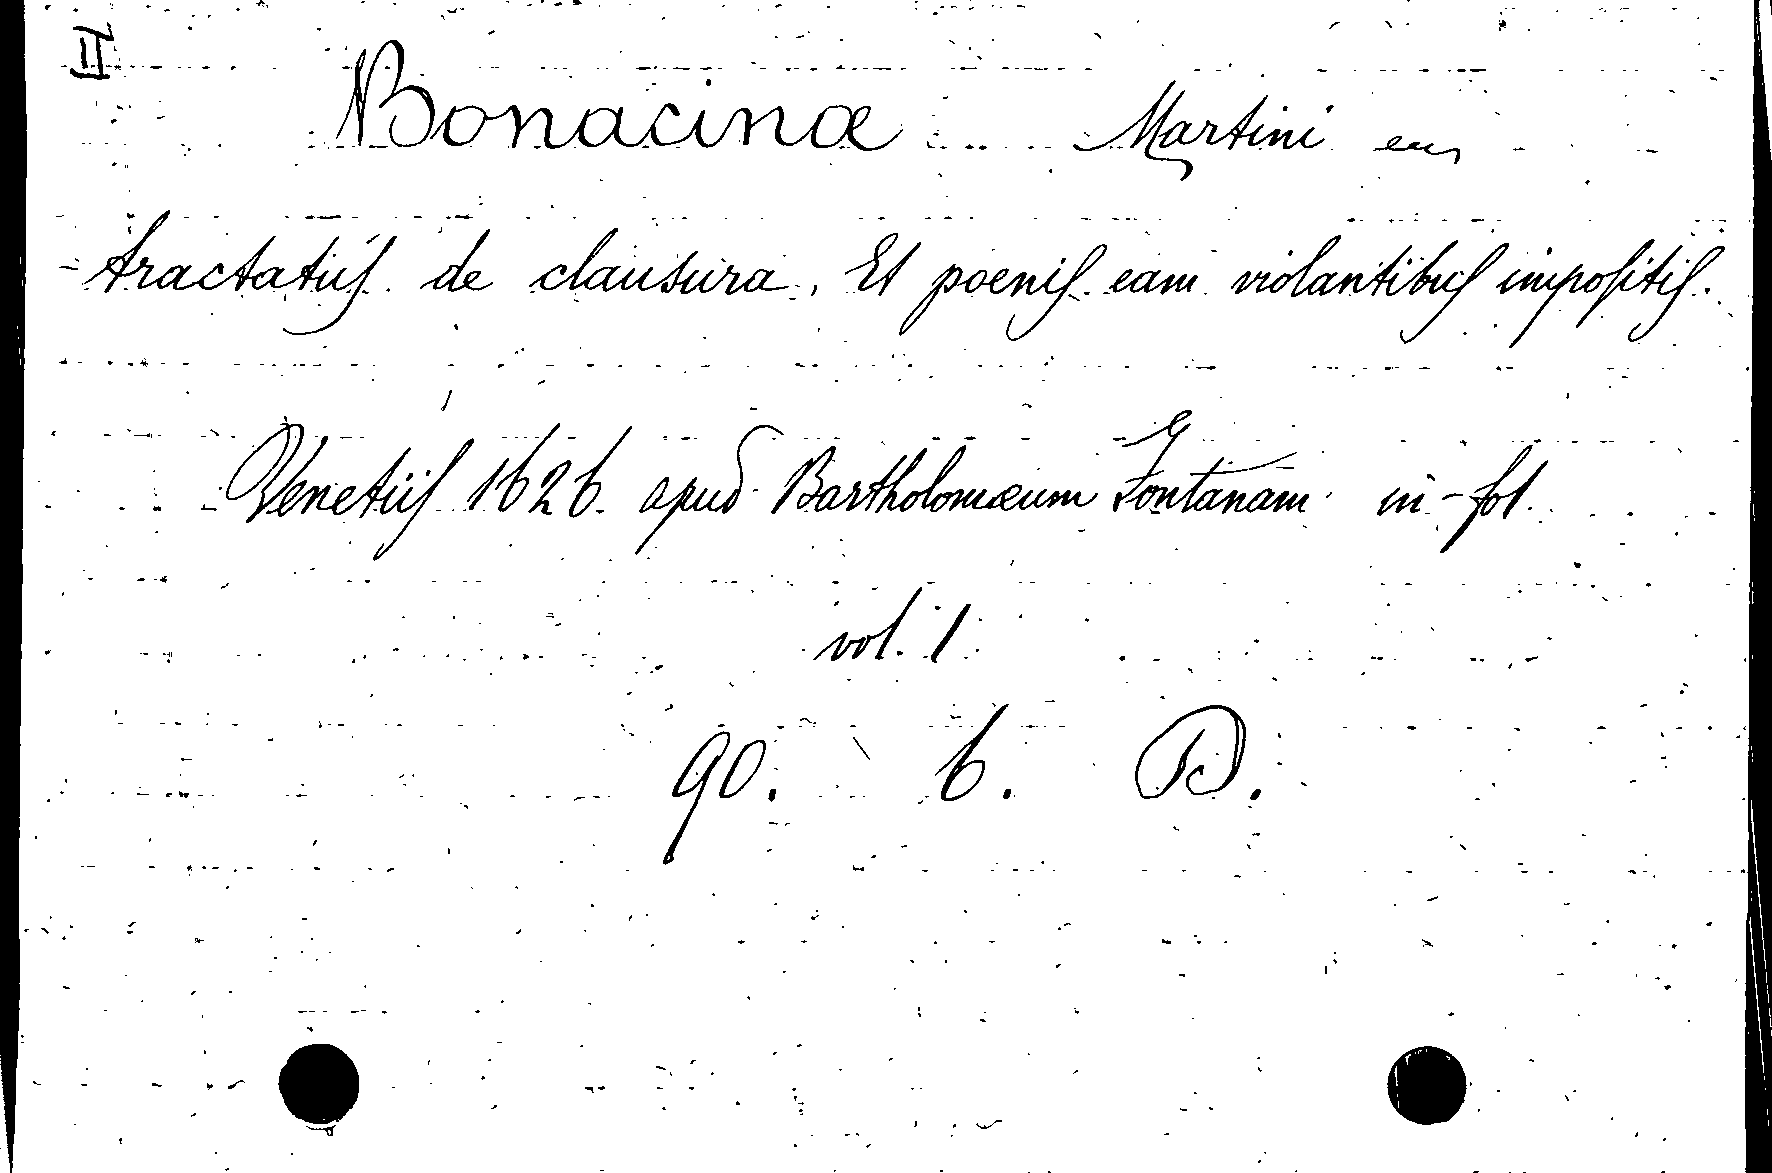 II
Bonacinæ Martini
tractatuſ de clausura. Et poeniſ eam violantibuſ impoſitiſ.
Venetiiſ 1626. apud Bartholomæum Fontanam in-fol.
vol. 1
90. 6. D.